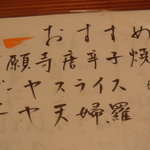 おすすめ
願寺唐辛子焼
ーヤスライス
ーヤ天婦羅